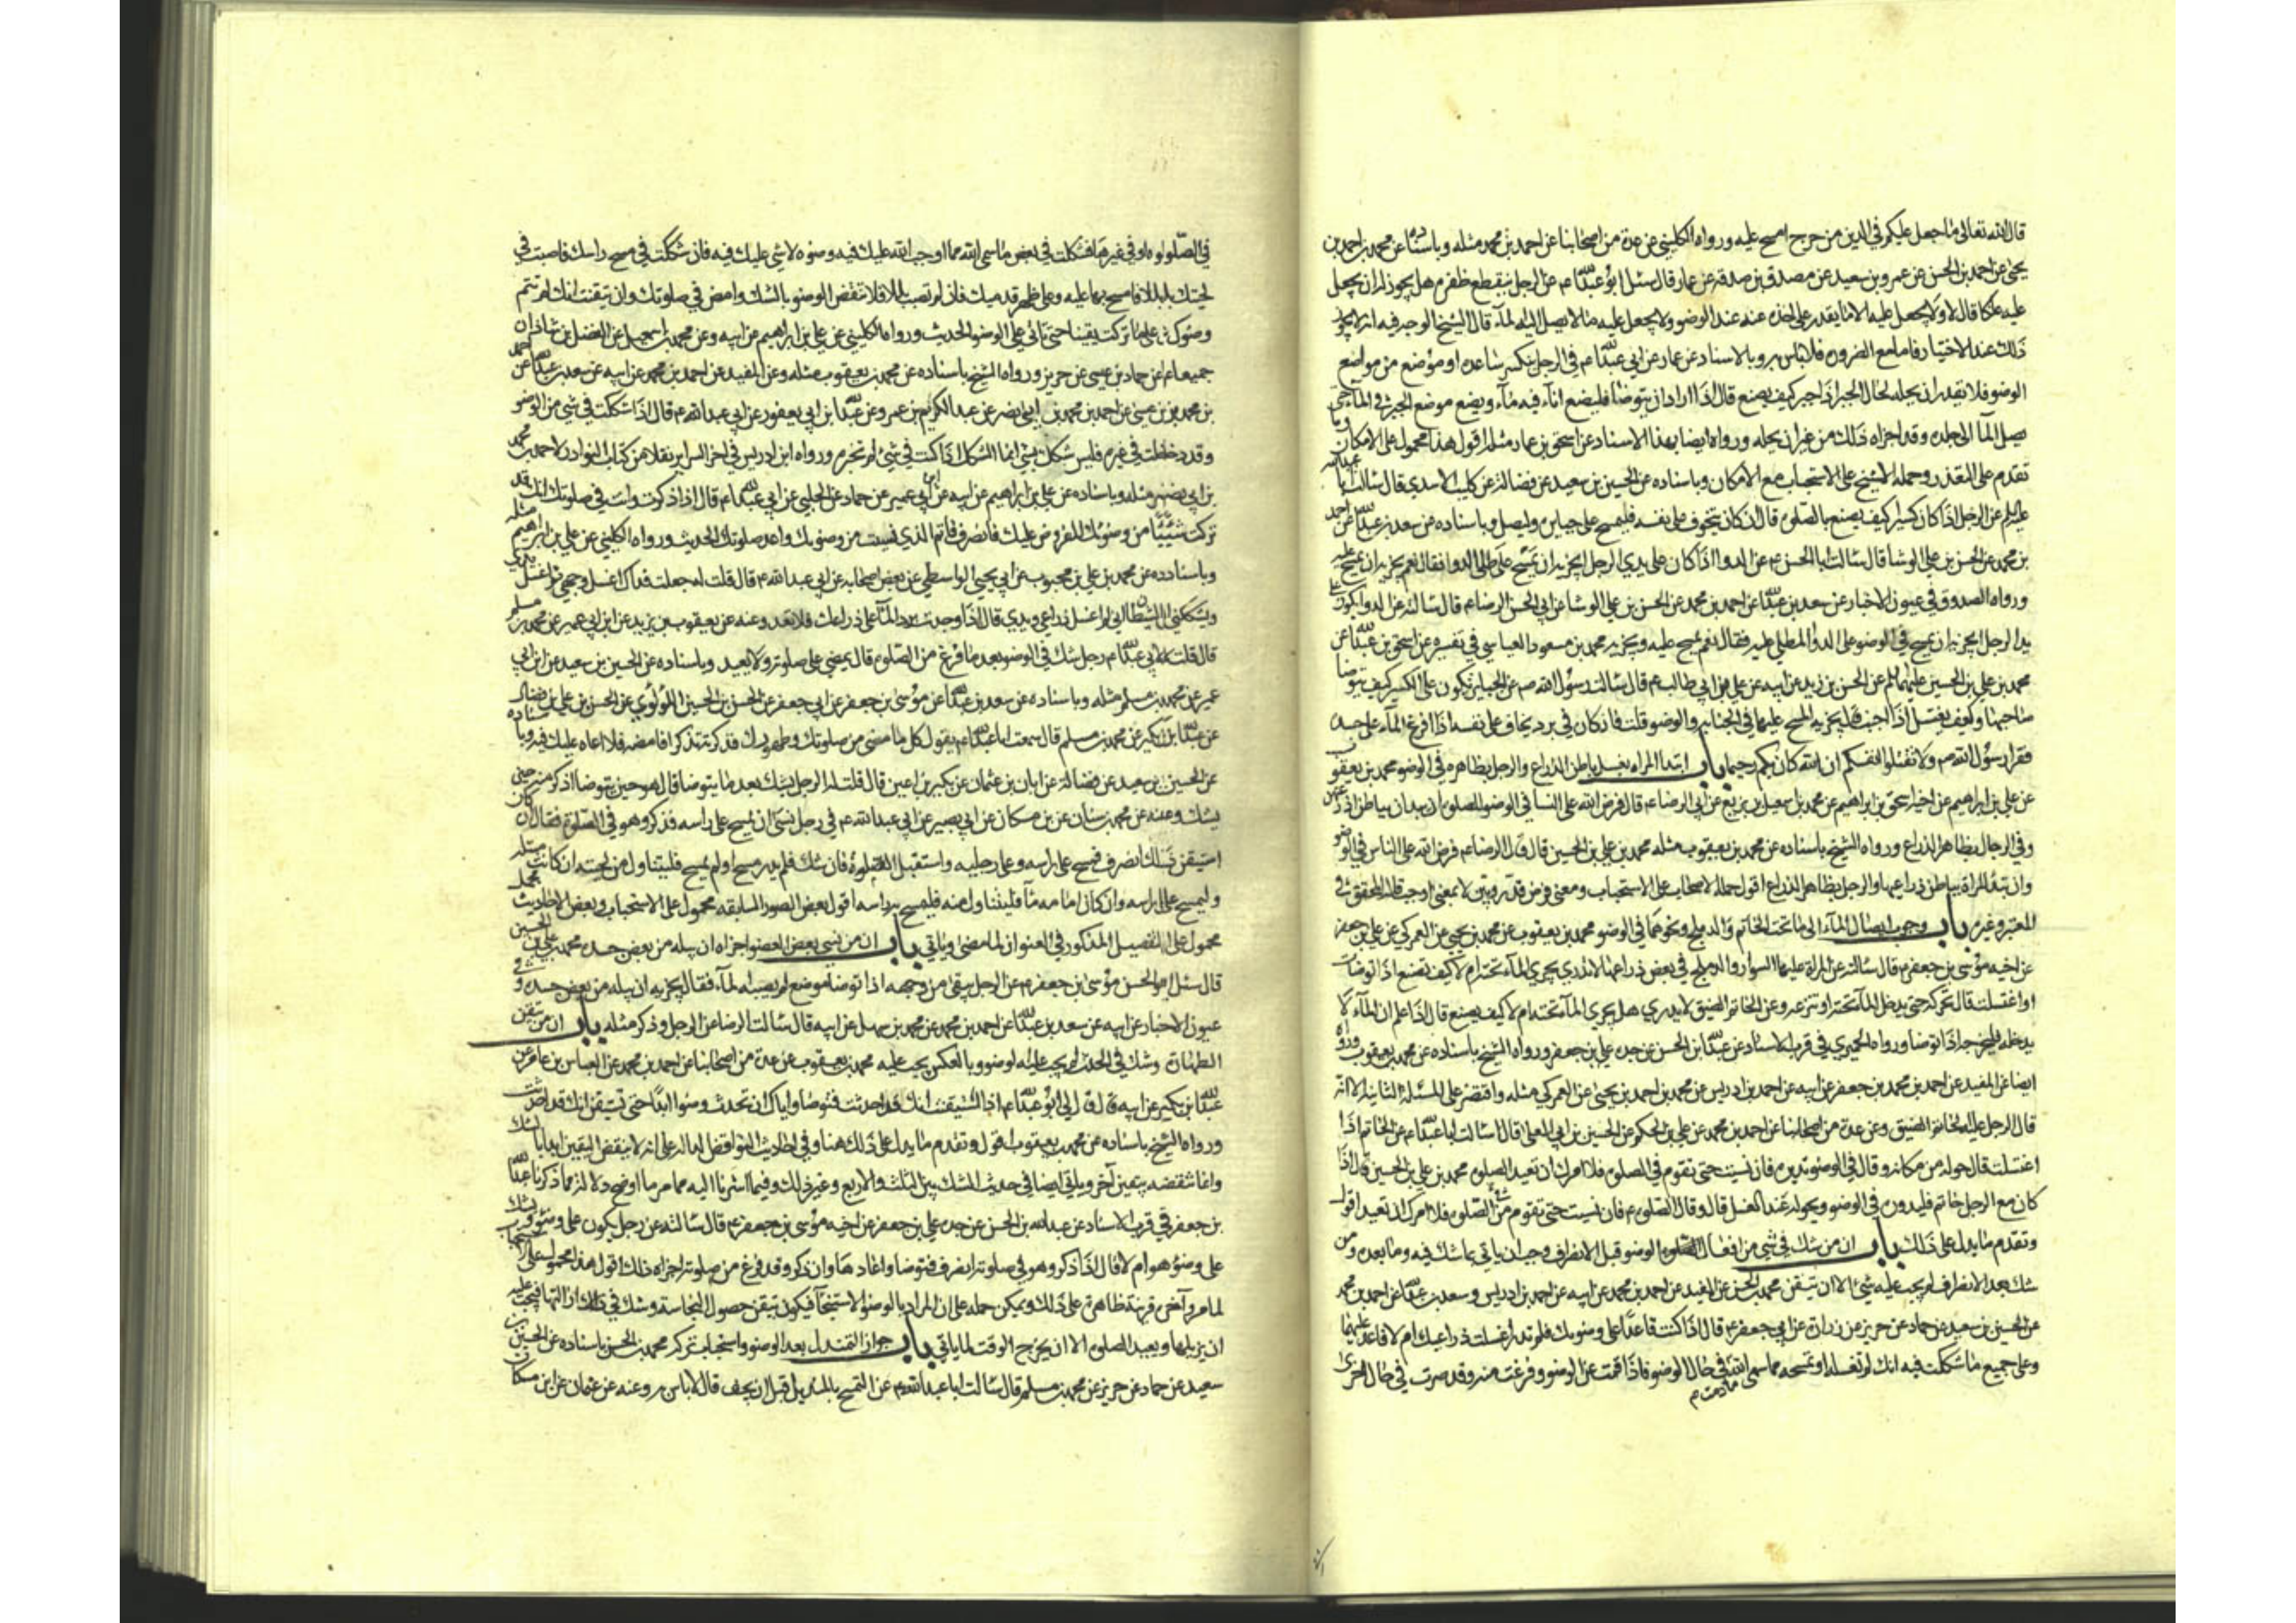 قال الله تعالى ما جعل عليكم في الدين من حرج امسح عليه ورواه الكليني عن عدة من اصحابنا عن احمد بن محمد مثله وباسناده عن محمد بن احمد بن
يحيى عن احمد بن الحسن عن عمرو بن سعيد عن مصدق بن صدقه عن عمار قال سئل ابو عبدالله ع عن الرجل ينقطع ظفره هل يجوز له ان يجعل
عليه علكا قال لا ولا يجعل عليه الا ما يقدر على اخذه عنه عند الوضو ولا يجعل عليه ما لا يصل اليه المآء قال الشيخ الوجه فيه انه لا يجوز
ذلك عند الاختيار فاما مع الضروره فلا باس به وبالاسناد عن عمار عن ابي عبدالله ع في الرجل ينكسر ساعده او موضع من مواضع
الوضو فلا يقدر ان يحله لحال الجبر اذا جبر كيف يصنع قال اذا اراد ان يتوضا فليضع انآء فيه مآء ويضع موضع الجبر في المآء حتى
يصل المآ الى جلده وقد اجزاه ذلك من غير ان يحله ورواه ايضا بهذا الاسناد عن اسحق بن عمار مثله اقول هذا محمول على الامكان وما
تقدم على التعذر وحمله الشيخ على الاستحباب مع الامكان وباسناده عن الحسين بن سعيد عن فضالة عن كليب الاسدي قال سالت ابا عبدالله
عليه السلم عن الرجل اذا كان كسيرا كيف يصنع بالصلوه قال ان كان يتخوف على نفسه فليمسح على جبايره وليصل وباسناده عن سعد بن عبدالله عن احمد
بن محمد عن الحسن بن علي الوشا قال سالت ابا الحسن ع عن الدوا اذا كان على يدي الرجل ايجزيه ان يمسح على طلى الدوا فقال نعم يجزيه ان يمسح عليه
ورواه الصدوق في عيون الاخبار عن سعد بن عبدالله عن احمد بن محمد عن الحسن بن علي الوشا عن ابي الحسن الرضا ع قال سالته عن الدوا يكون على
يد الرجل ايجزيه ان يمسح في الوضو على الدوا المطلي عليه فقال نعم يمسح عليه ويجزيه محمد بن مسعود العياسي في تفسيره عن اسحق بن عبدالله عن
محمد بن علي بن الحسين عليهما السلم عن الحسن بن زيد عن ابيه عن علي بن ابي طالب ع قال سالت رسول الله ص عن الجباير تكون على الكسير كيف يتوضا
صاحبها وكيف يغتسل اذا اجنب قال يجزيه المسح عليها في الجنابه والوضو قلت فان كان في برد يخاف على نفسه اذا افرغ المآء على جسده
فقرا رسول الله ص ولا تقتلوا انفسكم ان الله كان بكم رحيما باب ابتدا المراه بغسل باطن الذراع والرجل بظاهره في الوضو محمد بن يعقوب
عن علي بن ابراهيم عن اخيه اسحق بن ابراهيم عن محمد بن اسمعيل بن بزيع عن ابي الرضا ع قال فرض الله على النسا في الوضو للصلوه ان يبدان بباطن اذرعهن
وفي الرجال بظاهر الذراع ورواه الشيخ باسناده عن محمد بن يعقوب مثله محمد بن علي بن الحسين قال قال الرضا ع فرض الله على الناس في الوضو
وان تبدا المراة بباطن ذراعيها والرجل بظاهر الذراع اقول حمله الاصحاب على الاستحباب ومعنى فرض قدر وبين لا بمعنى اوجب قاله المحقق في
المعتبر وغيره باب وجوب ايصال المآء الى ما تحت الخاتم والدملج ونحوهما في الوضو محمد بن يعقوب عن محمد بن يحيى عن العمركي عن علي بن جعفر
عن اخيه موسى بن جعفر ع قال سالته عن المراة عليها السوار والدملج في بعض ذراعها لا تدري يجري المآء تحته ام لا كيف تصنع اذا توضات
او اغتسلت قال تحركه حتى يدخل المآء تحته او تنزعه وعن الخاتم الضيق لا يدري هل يجري المآء تحته ام لا كيف يصنع قال اذا علم ان المآء لا
يدخله فليخرجه اذا توضا ورواه الحميري في قرب الاسناد عن عبدالله بن الحسن عن جده علي بن جعفر ورواه الشيخ باسناده عن محمد بن يعقوب ورواه
ايضا عن المفيد عن احمد بن محمد بن جعفر عن ابيه عن احمد بن ادريس عن محمد بن احمد بن يحيى عن العمركي مثله واقتصر على المسئلة الثانيه الا انه
قال الرجل عليه الخاتم الضيق وعن عدة من اصحابنا عن احمد بن محمد عن علي بن الحكم عن الحسين بن ابي العلى قال سالت ابا عبدالله ع عن الخاتم اذا
اغتسلت قال حوله من مكانه وقال في الوضو تديره فان نسيت حتى تقوم في الصلوه فلا امرك ان تعيد الصلوه محمد بن علي بن الحسين قال اذا
كان مع الرجل خاتم فليدوره في الوضو ويحوله عند الغسل قال وقال الصادق ع فان نسيت حتى تقوم من الصلوه فلا امرك ان تعيد اقول
وتقدم ما يدل على ذلك باب ان من شك في شي من افعال الوضو قبل الانصراف وجب ان ياتي بما شك فيه وما بعده ومن
شك بعد الانصراف لم يجب عليه شي الا ان يتيقن محمد بن الحسن عن المفيد عن احمد بن محمد عن ابيه عن احمد بن ادريس وسعد بن عبدالله عن احمد بن محمد
عن الحسين بن سعيد عن حماد عن حريز عن زرارة عن ابي جعفر ع قال اذا كنت قاعدا على وضوءك فلم تدر اغسلت ذراعيك ام لا فاعد عليهما
وعلى جميع ما شككت فيه انك لم تغسله او تمسحه مما سمى الله في حال الوضو فاذا قمت عن الوضو وفرغت منه وقد صرت في حال اخرى
ما دمت
في الصلوه او في غيرها فشككت في بعض ما سمى الله مما اوجب الله عليك فيه وضوه لا شي عليك فيه فان شككت في مسح راسك فاصبت في
لحيتك بللا فامسح بها عليه وعلى ظهر قدميك فان لم تصب بللا فلا تنقض الوضو بالشك وامض في صلوتك وان تيقنت انك لم تتم
وضوك فاعد على ما تركت يقينا حتى تاتي على الوضو الحديث ورواه الكليني عن علي بن ابراهيم عن ابيه وعن محمد بن اسمعيل عن الفضل بن شاذان
جميعا عن حماد بن عيسى عن حريز ورواه الشيخ باسناده عن محمد بن يعقوب مثله وعن المفيد عن احمد بن محمد عن ابيه عن سعد بن عبدالله عن احمد
بن محمد بن عيسى عن احمد بن محمد بن ابي نصر عن عبد الكريم بن عمرو عن عبدالله بن ابي يعفور عن ابي عبد الله ع قال اذا شككت في شي من الوضو
وقد دخلت في غيره فليس شكك بشي انما الشك اذا كنت في شي لم تجزه ورواه ابن ادريس في اخر السراير نقلا من كتاب النوادر لاحمد بن محمد
بن ابي نصر مثله وباسناده عن علي بن ابراهيم عن ابيه عن ابن ابي عمير عن حماد عن الحلبي عن ابي عبدالله ع قال اذا ذكرت وانت في صلوتك انك قد
تركت شيئا من وضوئك المفروض عليك فانصرف فاتم الذي نسيت من وضوئك واعد صلوتك الحديث ورواه الكليني عن علي بن ابراهيم مثله
وباسناده عن محمد بن علي بن محبوب عن ابي يحيى الواسطي عن بعض اصحابه عن ابي عبد الله ع قال قلت له جعلت فداك اغسل وجهي ثم اغسل يدي
ويشككني الشيطان اني لم اغسل ذراعي ويدي قال اذا وجدت برد المآء على ذراعك فلا تعد وعنه عن يعقوب بن يزيد عن ابن ابي عمير عن محمد بن مسلم
قال قلت لابي عبدالله ع رجل شك في الوضو بعد ما فرغ من الصلوه قال يمضي على صلوته ولا يعيد وباسناده عن الحسين بن سعيد عن ابن ابي
عمير عن محمد بن مسلم مثله وباسناده عن سعد بن عبدالله عن موسى بن جعفر عن ابي جعفر عن الحسن بن الحسين اللؤلؤي عن الحسن بن علي بن فضال
عن عبدالله بن بكير عن محمد بن مسلم قال سمعت ابا عبدالله ع يقول كل ما مضى من صلوتك وطهورك فذكرته تذكرا فامضه فلا اعاده عليك فيه وباسناده
عن الحسين بن سعيد عن فضالة عن ابان بن عثمان عن بكير بن اعين قال قلت له الرجل يشك بعد ما يتوضا قال هو حين يتوضا اذكر منه حين
يشك وعنه عن محمد بن سنان عن بن مسكان عن ابي بصير عن ابي عبد الله ع في رجل نسى ان يمسح على راسه فذكر وهو في الصلوة فقال ان كان
استيقن ذلك انصرف فمسح على راسه وعلى رجليه واستقبل الصلوة فان شك فلم يدر مسح او لم يمسح فليتناول من لحيته ان كانت مبتله
وليمسح على راسه وان كان امامه مآء فليتناول منه فليمسح به راسه اقول بعض الصور السابقه محمول على الاستحباب وبعض الاحاديث مجمل
محمول على التفصيل المذكور في العنوان لما مضى وياتي باب ان من نسي بعض العضو اجزاه ان يبله من بعض جسده محمد بن علي بن الحسين
قال سئل ابو الحسن موسى بن جعفر ع عن الرجل يبقى من وجهه اذا توضا موضع لم يصبه المآء فقال يجزيه ان يبله من بعض جسده و في
عيون الاخبار عن ابيه عن سعد بن عبدالله عن احمد بن محمد عن محمد بن سهل عن ابيه قال سالت الرضا عن الرجل وذكر مثله باب ان من تيقن
الطهارة وشك في الحدث لم يجب عليه الوضو وبالعكس يجب عليه محمد بن يعقوب عن عدة من اصحابنا عن احمد بن محمد عن العباس بن عامر عن
عبدالله بن بكير عن ابيه قال قال لي ابو عبدالله ع اذا استيقنت انك قد احدثت فتوضا واياك ان تحدث وضوا ابدا حتى تستيقن انك قد احدثت
ورواه الشيخ باسناده عن محمد بن يعقوب اقول وتقدم ما يدل على ذلك هنا وفي احاديث النواقض الداله على انه لا ينقض اليقين ابدا بالشك
وانما تنقضه بيقين آخر وياتي ايضا في حديث الشك بين الثلث والاربع وغير ذلك وفيما اشرنا اليه مما مر ما اوضح دلالة مما ذكرنا عبدالله
بن جعفر في قرب الاسناد عن عبدالله بن الحسن عن جده علي بن جعفر عن اخيه موسى بن جعفر ع قال سالته عن رجل يكون على وضو ويشك
على وضوء هو ام لا قال اذا ذكر وهو في صلوته انصرف فتوضا واعادها وان ذكر وقد فرغ من صلوته اجزاه ذلك اقول هذا محمول على الاستحباب
لما مر وآخره قرينة ظاهرة على ذلك ويمكن حمله على ان المراد بالوضو الاستنجآ فيكون تيقن حصول النجاسة وشك في ازالتها فيجب عليه
ان يزيلها ويعيد الصلوه الا ان يخرج الوقت لما ياتي باب جواز التمندل بعد الوضو واستحباب تركه محمد بن الحسن باسناده عن الحسين بن
سعيد عن حماد عن حريز عن محمد بن مسلم قال سالت ابا عبدالله ع عن التمسح بالمنديل قبل ان يجف قال لا باس به وعنه عن عثمان عن ابن مسكان